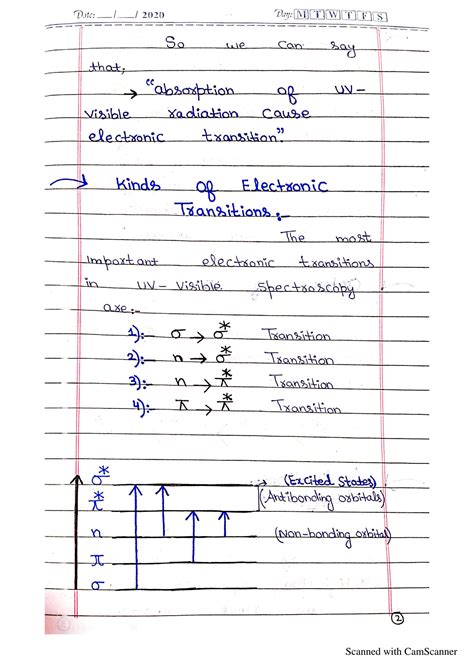 Date: __/__/ 2020 Day: M T W T F S
So we can say
that;
→ "absorption of UV-
visible radiation cause
electronic transition."
→ Kinds of Electronic
Transitions:-
The most
important electronic transitions
in UV-Visible Spectroscopy
are:-
1):- σ → σ* Transition
2):- n → σ* Transition
3):- n → π* Transition
4):- π → π* Transition
σ* → (Excited States)
π* (Antibonding orbitals)
n (Non-bonding orbital)
π
σ
2
Scanned with CamScanner